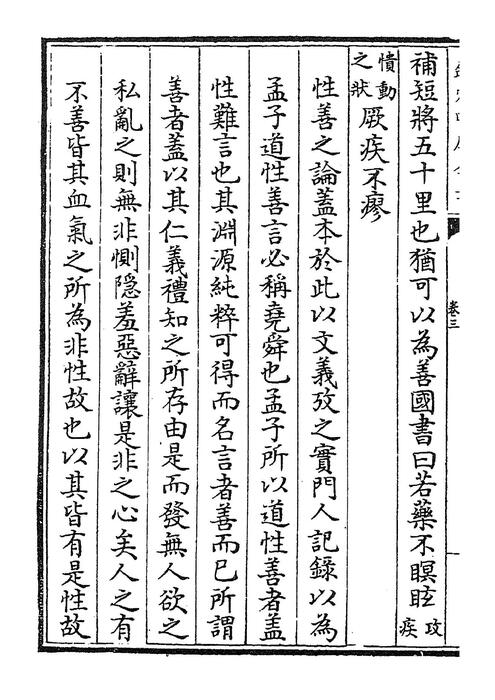 補短將五十里也猶可以為善國書曰若藥不瞑眩攻疾
憒動之狀厥疾不瘳
性善之論蓋本於此以文義攷之實門人記錄以為
孟子道性善言必稱堯舜也孟子所以道性善者蓋
性難言也其淵源純粹可得而名言者善而已所謂
善者蓋以其仁義禮知之所存由是而發無人欲之
私亂之則無非惻隠羞惡辭讓是非之心矣人之有
不善皆其血氣之所為非性故也以其皆有是性故
卷三